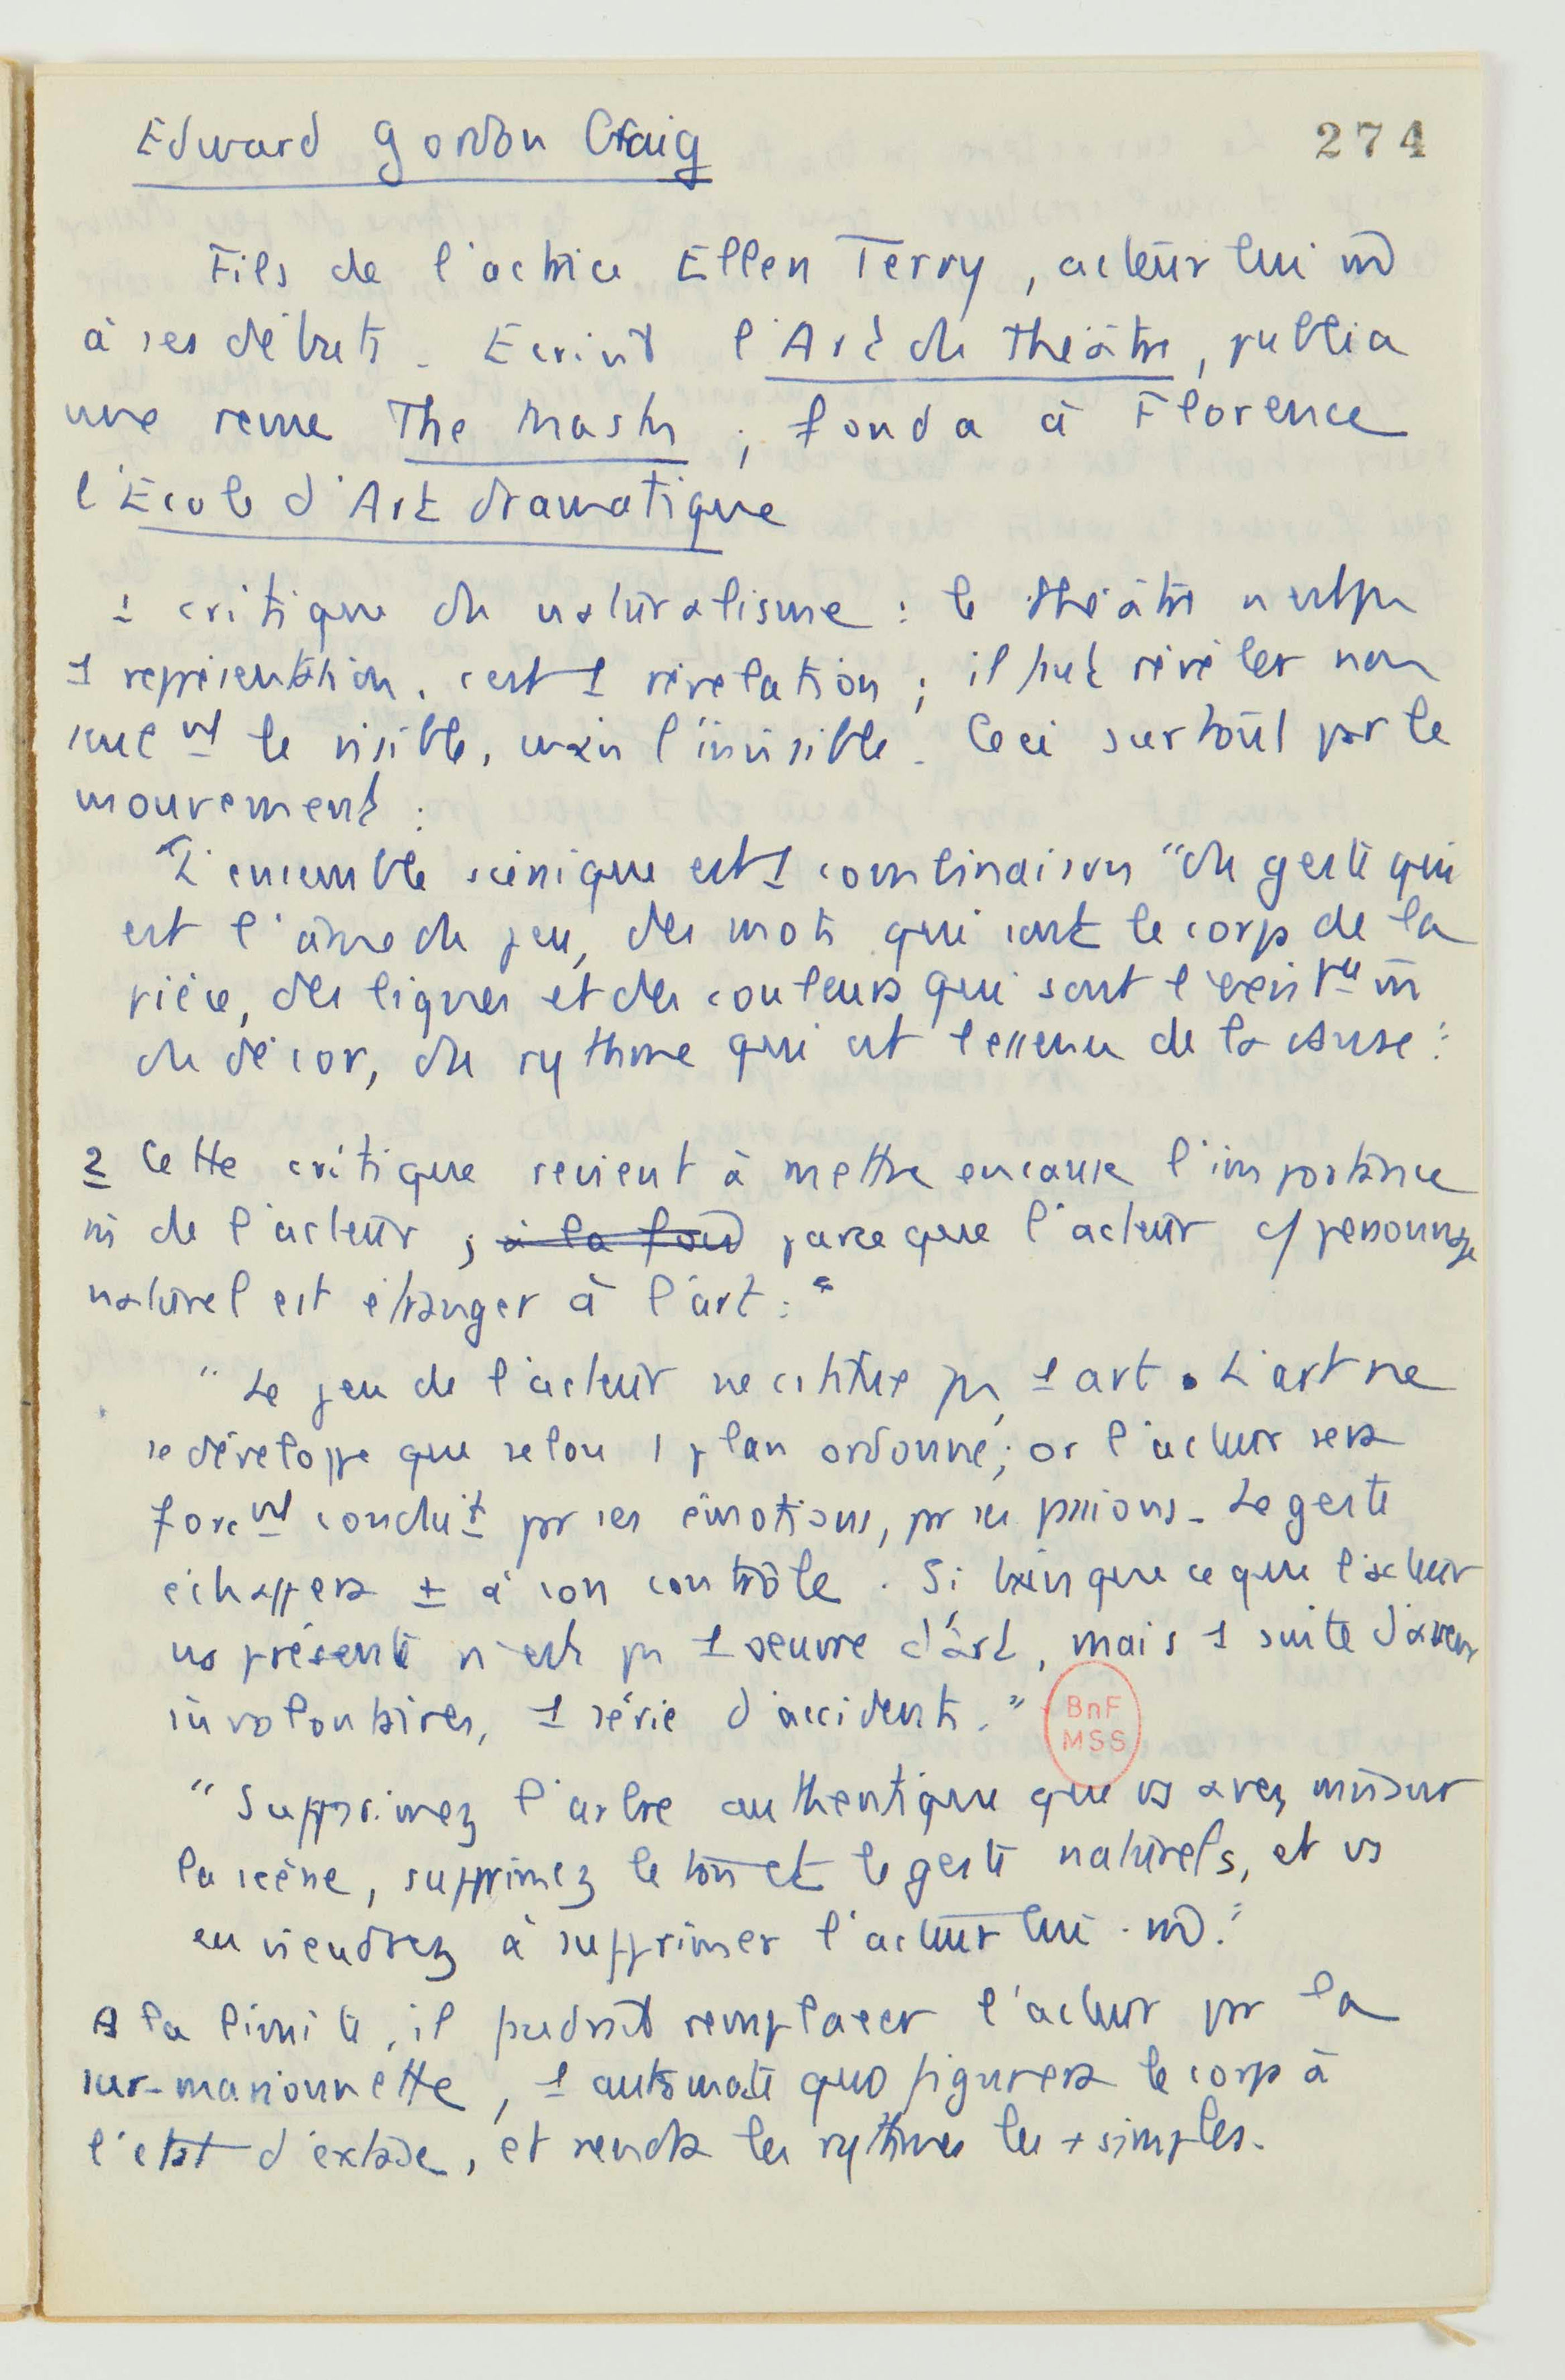 Edward Gordon Craig
274
Fils de l'actrice Ellen Terry, acteur lui m̂
à ses débuts. Ecrivit l'Art du théâtre, publia
une revue The Mask ; fonda à Florence
l'Ecole d'Art dramatique
1 critique du naturalisme : le théâtre n'est pas
1 représentation, c'est 1 révélation ; il peut révéler non
seul nt le visible, mais l'invisible. Ceci surtout par le
mouvement :
L'ensemble scénique est 1 combinaison "du geste qui
est l'âme du jeu, des mots qui sont le corps de la
pièce, des lignes et des couleurs qui sont l'exist ce m̂
du décor, du rythme qui est l'essence de la danse."
2 Cette critique revient à mettre en cause l'importance
m̂ de l'acteur ; à la fond parce que l'acteur c/ personnage
naturel est étranger à l'art :
"Le jeu de l'acteur ne cstitue pas 1 art. L'art ne
se développe que selon 1 plan ordonné ; or l'acteur sera
forc nt conduit par ses émotions, par ses passions. Le geste
échappera ± à son contrôle. Si bien que ce que l'acteur
ns présente n'est pas 1 oeuvre d'art, mais 1 suite d'aveux
involontaires, 1 série d'accidents."
BnF
MSS
"Supprimez l'arbre authentique que vs avez mis sur
la scène, supprimez le ton et le geste naturels, et vs
en viendrez à supprimer l'acteur lui-m̂."
A la limite, il faudrait remplacer l'acteur par la
sur-marionnette, 1 automate qui figurera le corps à
l'état d'extase, et rendra les rythmes les + simples.